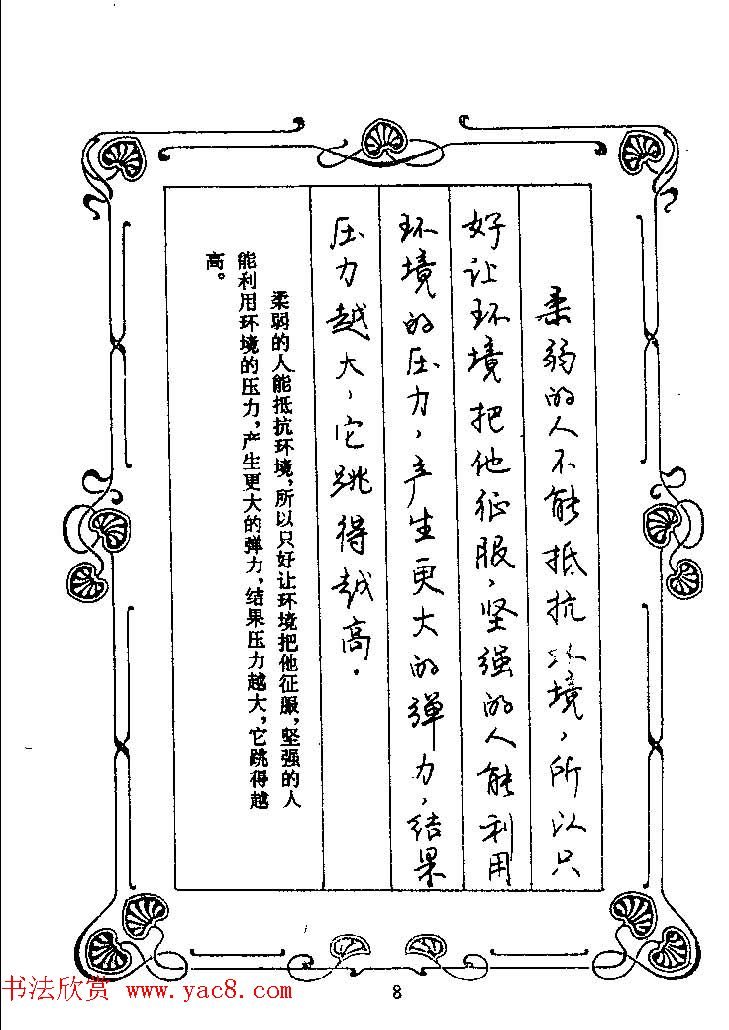 柔弱的人不能抵抗环境，所以只
好让环境把他征服，坚强的人能利用
环境的压力，产生更大的弹力，结果
压力越大，它跳得越高．
柔弱的人能抵抗环境，所以只好让环境把他征服，坚强的人
能利用环境的压力，产生更大的弹力，结果压力越大，它跳得越
高。
书法欣赏 www.yac8.com
8